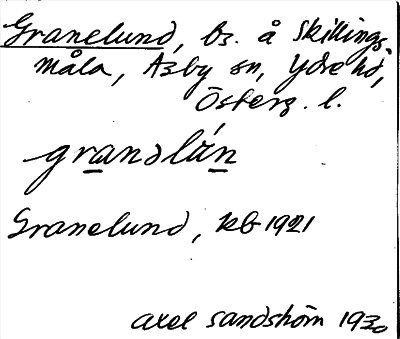 Granelund, bs. å Skillings-
måla, Asby sn, Ydre hd,
Österg. l.
grandlún
Granelund, kb 1921
Axel Sandström 1930